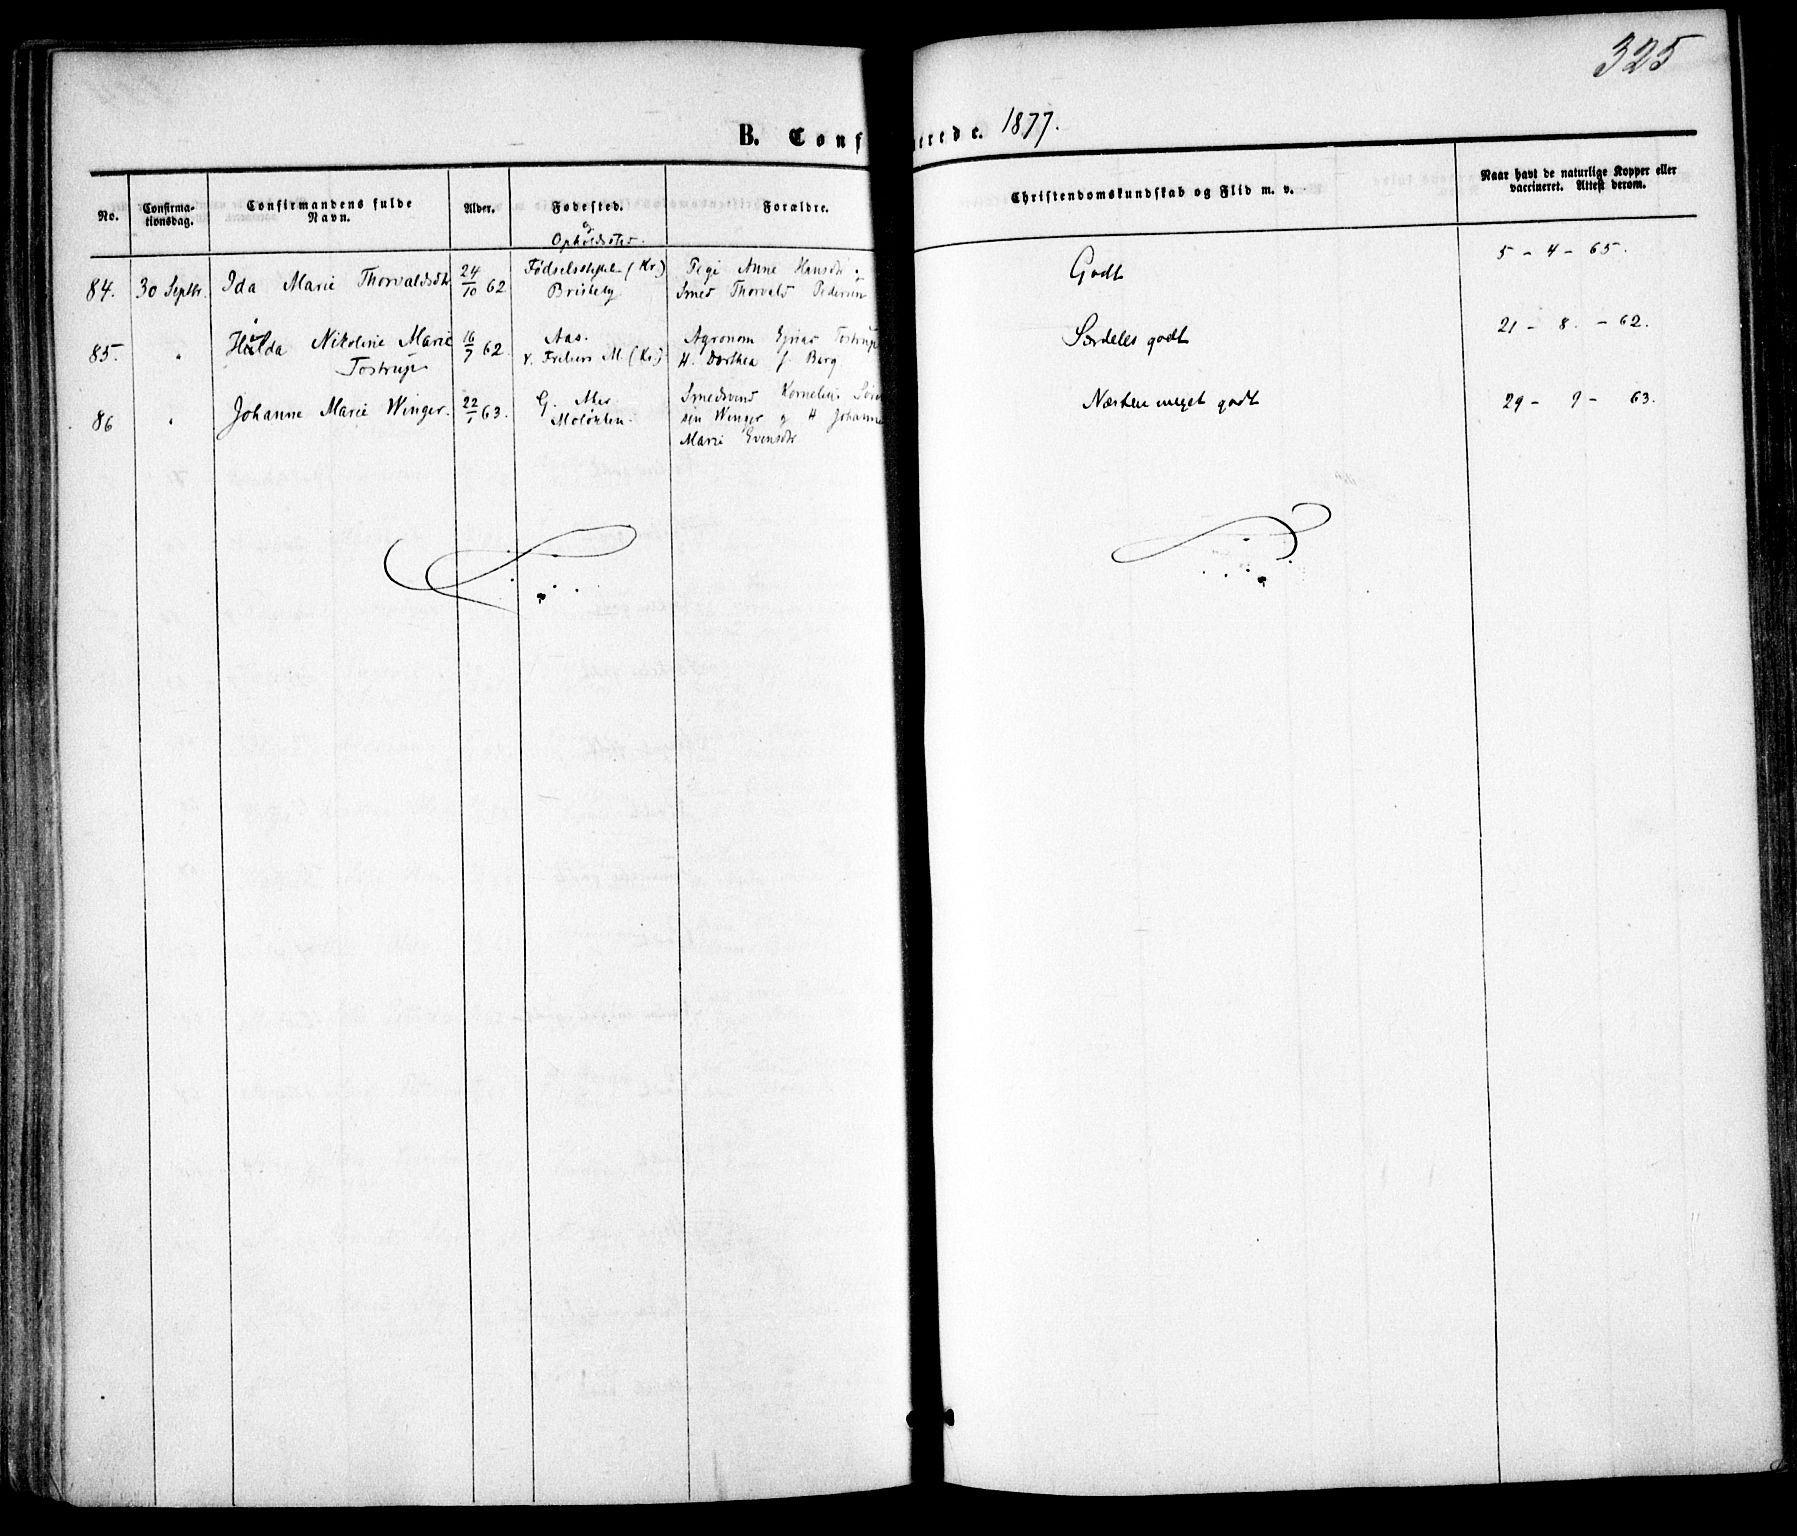 325
B. Conf erede. 1877.
No.
Confirma-
tionsdag.
Confirmandens fulde
Navn.
Alder.
Fødested.
og
Opholdssted.
Forældre.
Christendomskundskab og Flid m. v.
Naar havt de naturlige Kopper eller
vaccineret. Attest derom.
84. 30 Septbr. Ida Marie Thorvaldsdtr 24/10 62
Fødselsstift. (Kr.)
Pige Anne Hansdtr og
Smed Thorvald Pedersen
Godt
5 - 4 - 65.
85. " Hulda Nikoline Marie
Tostrup
16/7 62.
Aas.
(Kr.)
Agronom Tostrup
H. Dorthea f. Berg
Særdeles godt
21 - 8. - 62.
86 " Johanne Marie Winger. 22/1 63.
Smedsvend Kornelius Sören
sen Winger og H Johanne
Marie Evensdtr
Næsten meget godt
29 - 9 - 63.